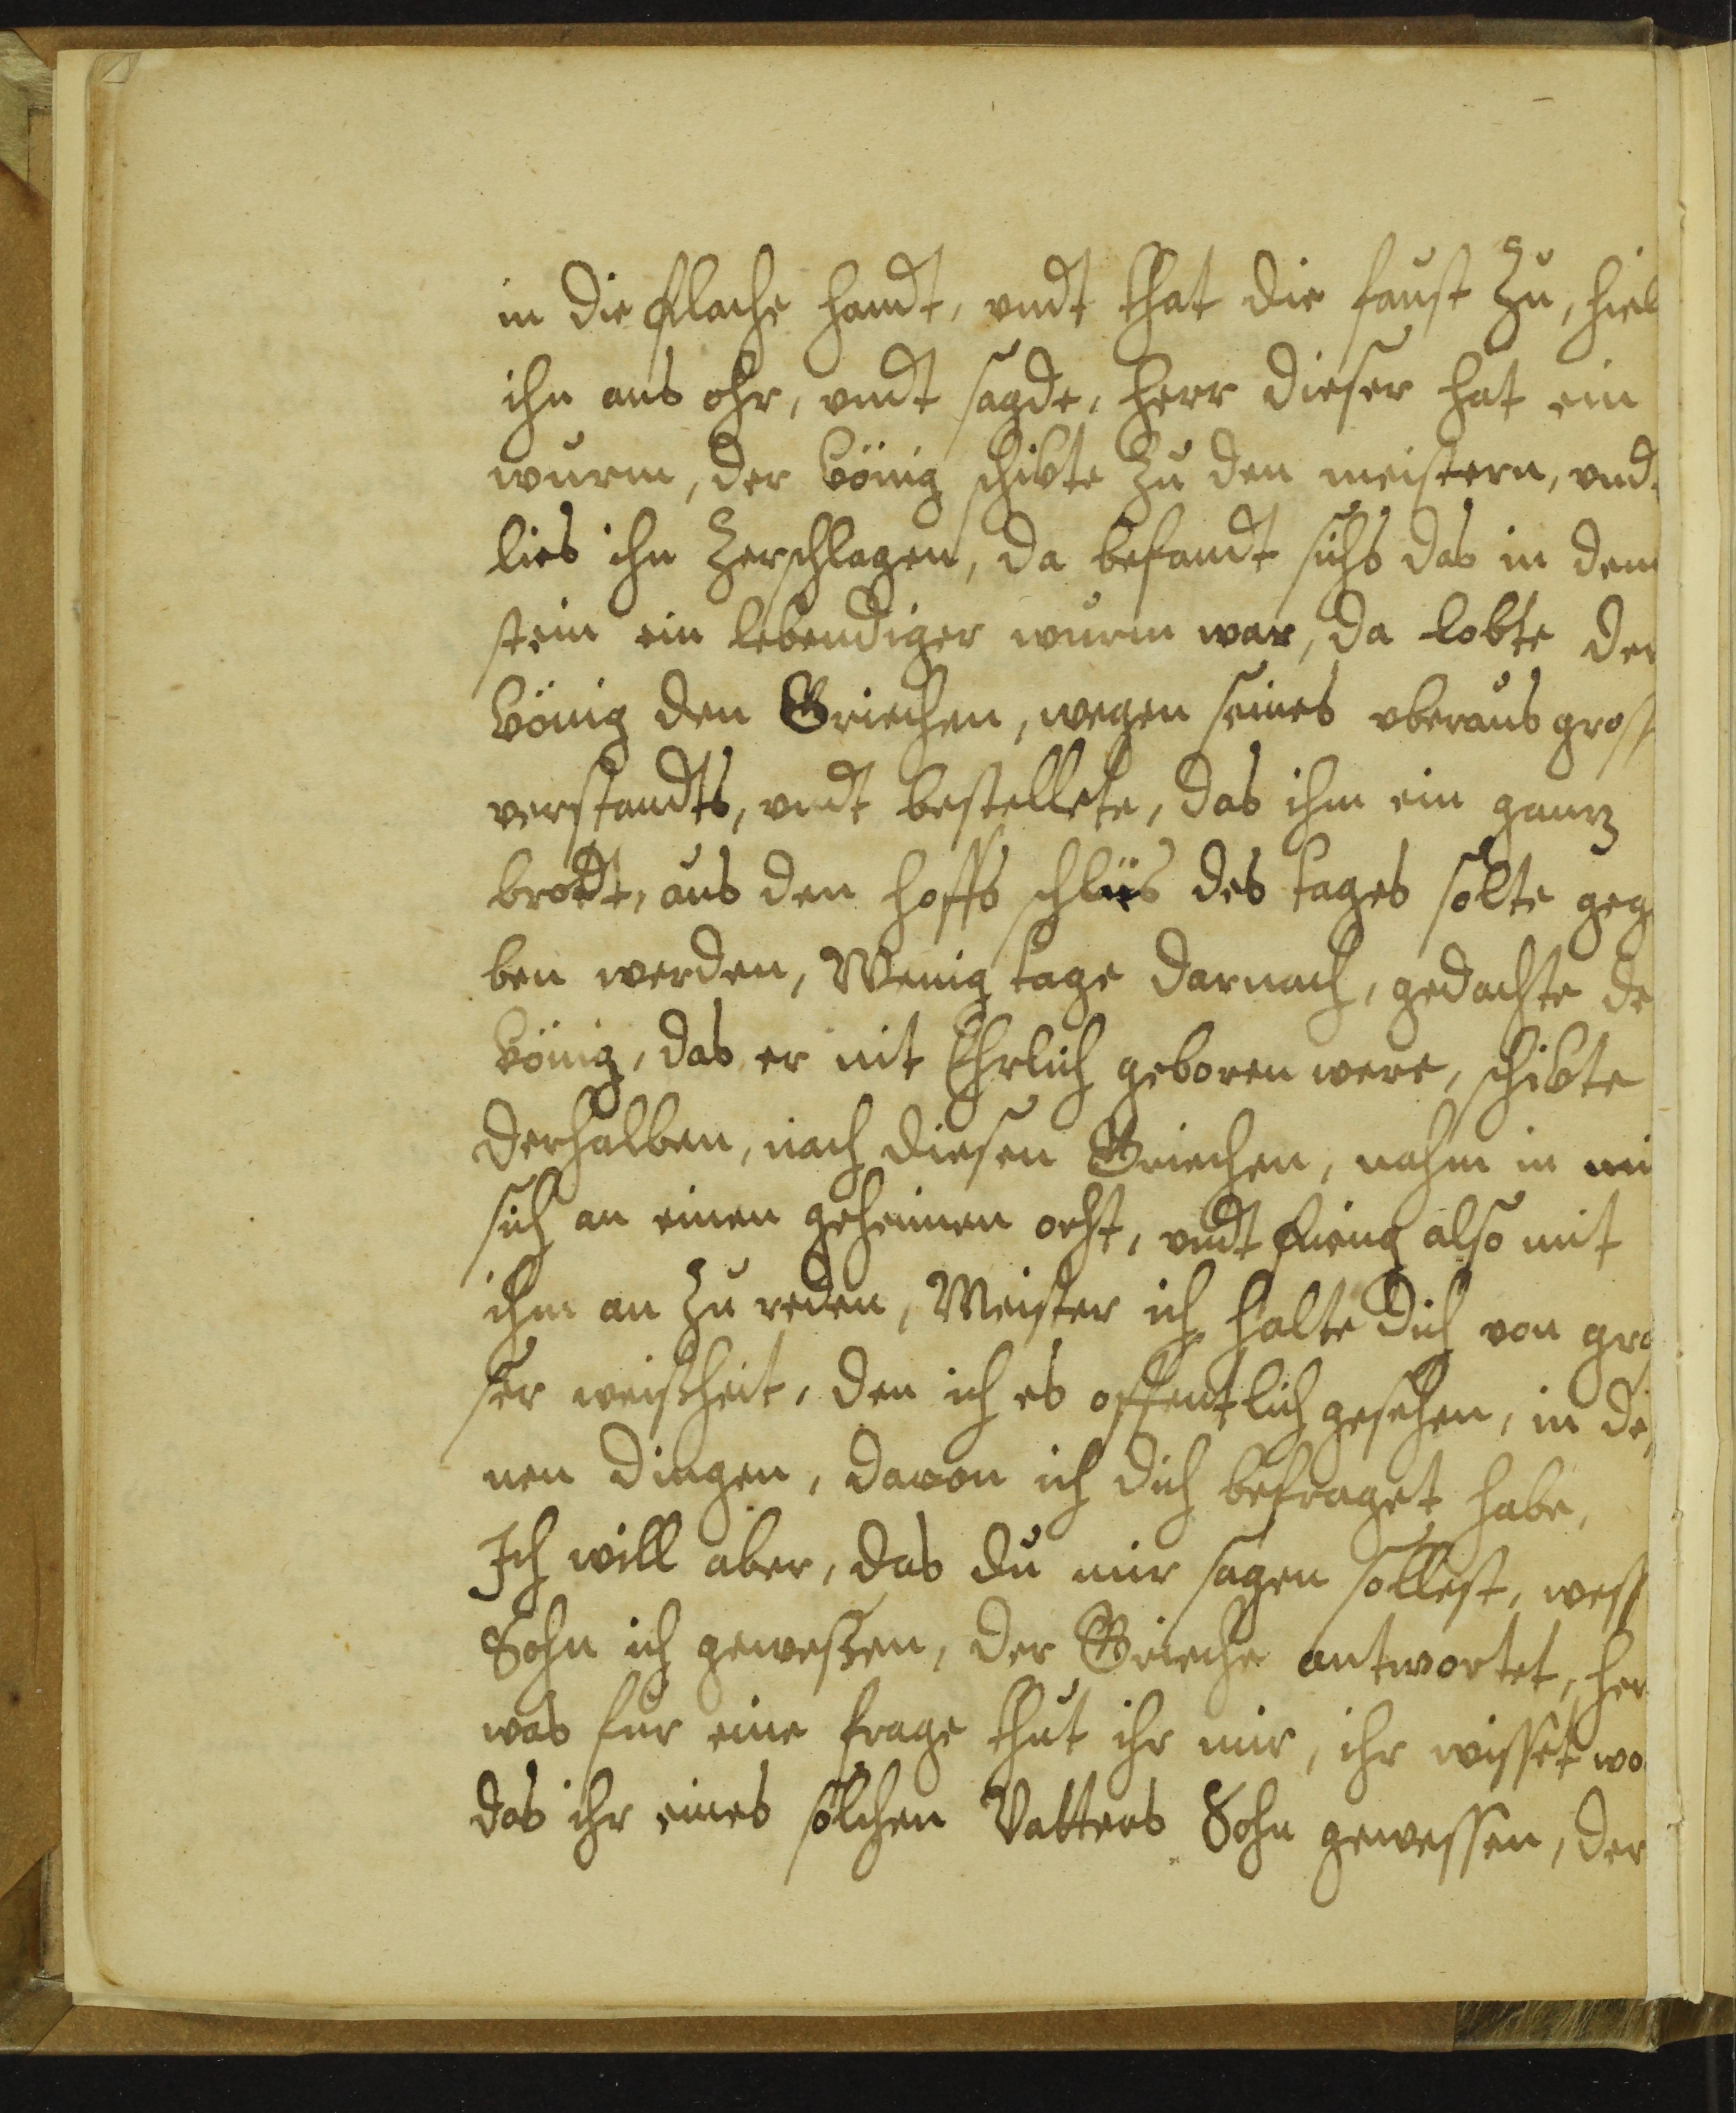 in die flache handt, vndt that die faust zu, hiel
ihn ans ohr, vndt sagde, Herr dieser hat ein
wurm, der König schikte zu den meistern, vndt
lies ihn zerschlagen, da befandt sichs das in dem
stein ein lebendiger wurm war, da lobte der
König den Griechen, wegen seines vberaus gross
verstandts, vndt bestellete, das ihm ein gantz
brodt, aus den hoffs schlüs des tages solte gege
ben werden, Wenig tage darnach, gedachte de
König, das er nit Ehrlich geboren were, schikte
derhalben, nach diesen Griechen, nahm in mi
sich an einen geheimen orht, vndt fieng also mit
ihm an zu reden, Meister ich halte dich von gro
ser weisheit, den ich es offentlich gesehen, in de
nen dingen, davon ich dich befraget habe,
Ich will aber, das du mir sagen sollest, wess
Sohn ich geweßen, der Grieche antwortet, Her
was fur eine frage thut ihr mir, ihr wisset wo
das ihr eines solchen Vatters Sohn gewessen, der